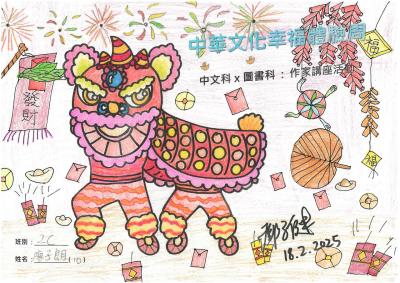 中華文化幸福體驗周
中文科 x 圖書科 : 作家講座活
發財
福
福
班別: 2C
姓名: (10)
18.2.2025